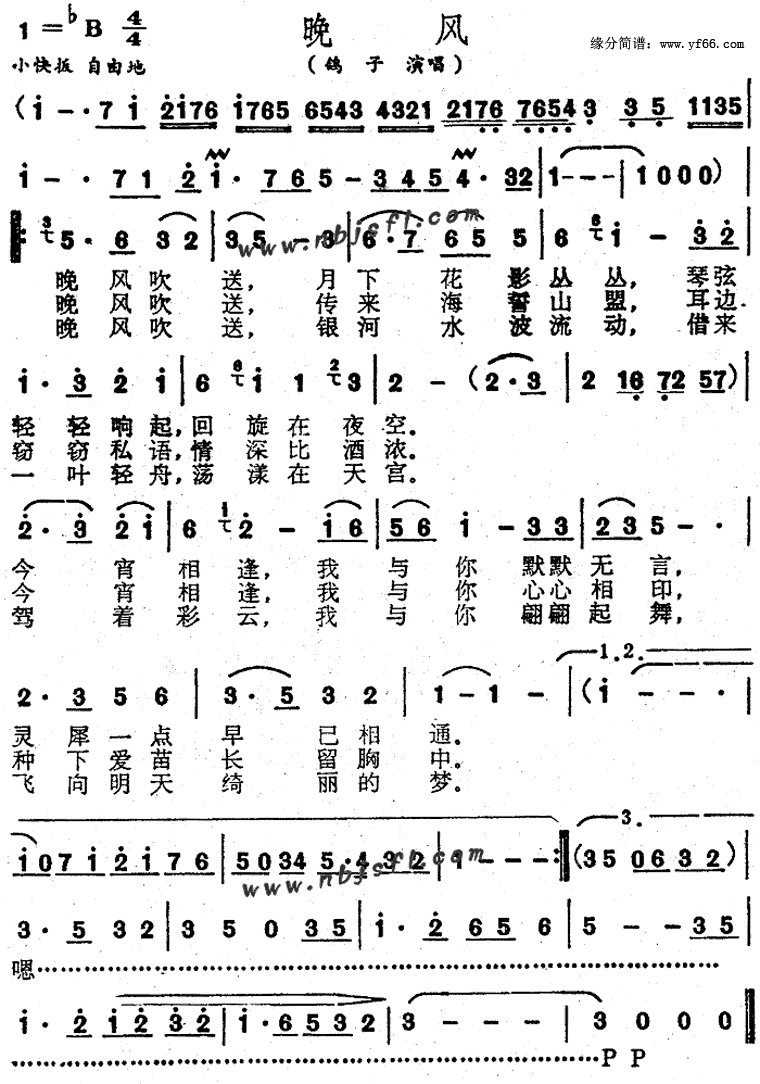 1=♭B 4/4 晚 风 缘分简谱：www.yf66.com
小快板 自由地 （鸽 子 演唱）
(i - · 7 i 2176 1765 6543 4321 2176 7654 3 3 5 1135
i - · 7 1 2 i · 7 6 5 - 3 4 5 4 · 32 1 - - - 1 0 0 0)
5 · 6 3 2 3 5 - 3 6 · 7 6 5 5 6 i - 3 2
www.nbjsfl.com
晚 风 吹 送， 月 下 花 影 丛 丛， 琴 弦
晚 风 吹 送， 传 来 海 誓 山 盟， 耳 边
晚 风 吹 送， 银 河 水 波 流 动， 借 来
i · 3 2 i 6 i 1 3 2 - (2 · 3 2 16 72 57)
轻 轻 响 起，回 旋 在 夜 空。
窃 窃 私 语，情 深 比 酒 浓。
一 叶 轻 舟，荡 漾 在 天 宫。
2 · 3 2 i 6 2 - i 6 5 6 i - 3 3 2 3 5 - ·
今 宵 相 逢， 我 与 你 默 默 无 言，
今 宵 相 逢， 我 与 你 心 心 相 印，
驾 着 彩 云， 我 与 你 翩 翩 起 舞，
1.2.
2 · 3 5 6 3 · 5 3 2 1 - 1 - (i - - ·
灵 犀 一 点 早 已 相 通。
种 下 爱 苗 长 留 胸 中。
飞 向 明 天 绮 丽 的 梦。
3.
i 0 7 i 2 i 7 6 5 0 3 4 5 · 4 3 2 1 - - - :‖ (3 5 0 6 3 2)
www.nbjsfl.com
3 · 5 3 2 3 5 0 3 5 i · 2 6 5 6 5 - - 3 5
嗯……
i · 2 i 2 3 2 i · 6 5 3 2 3 - - - 3 0 0 0
……P P